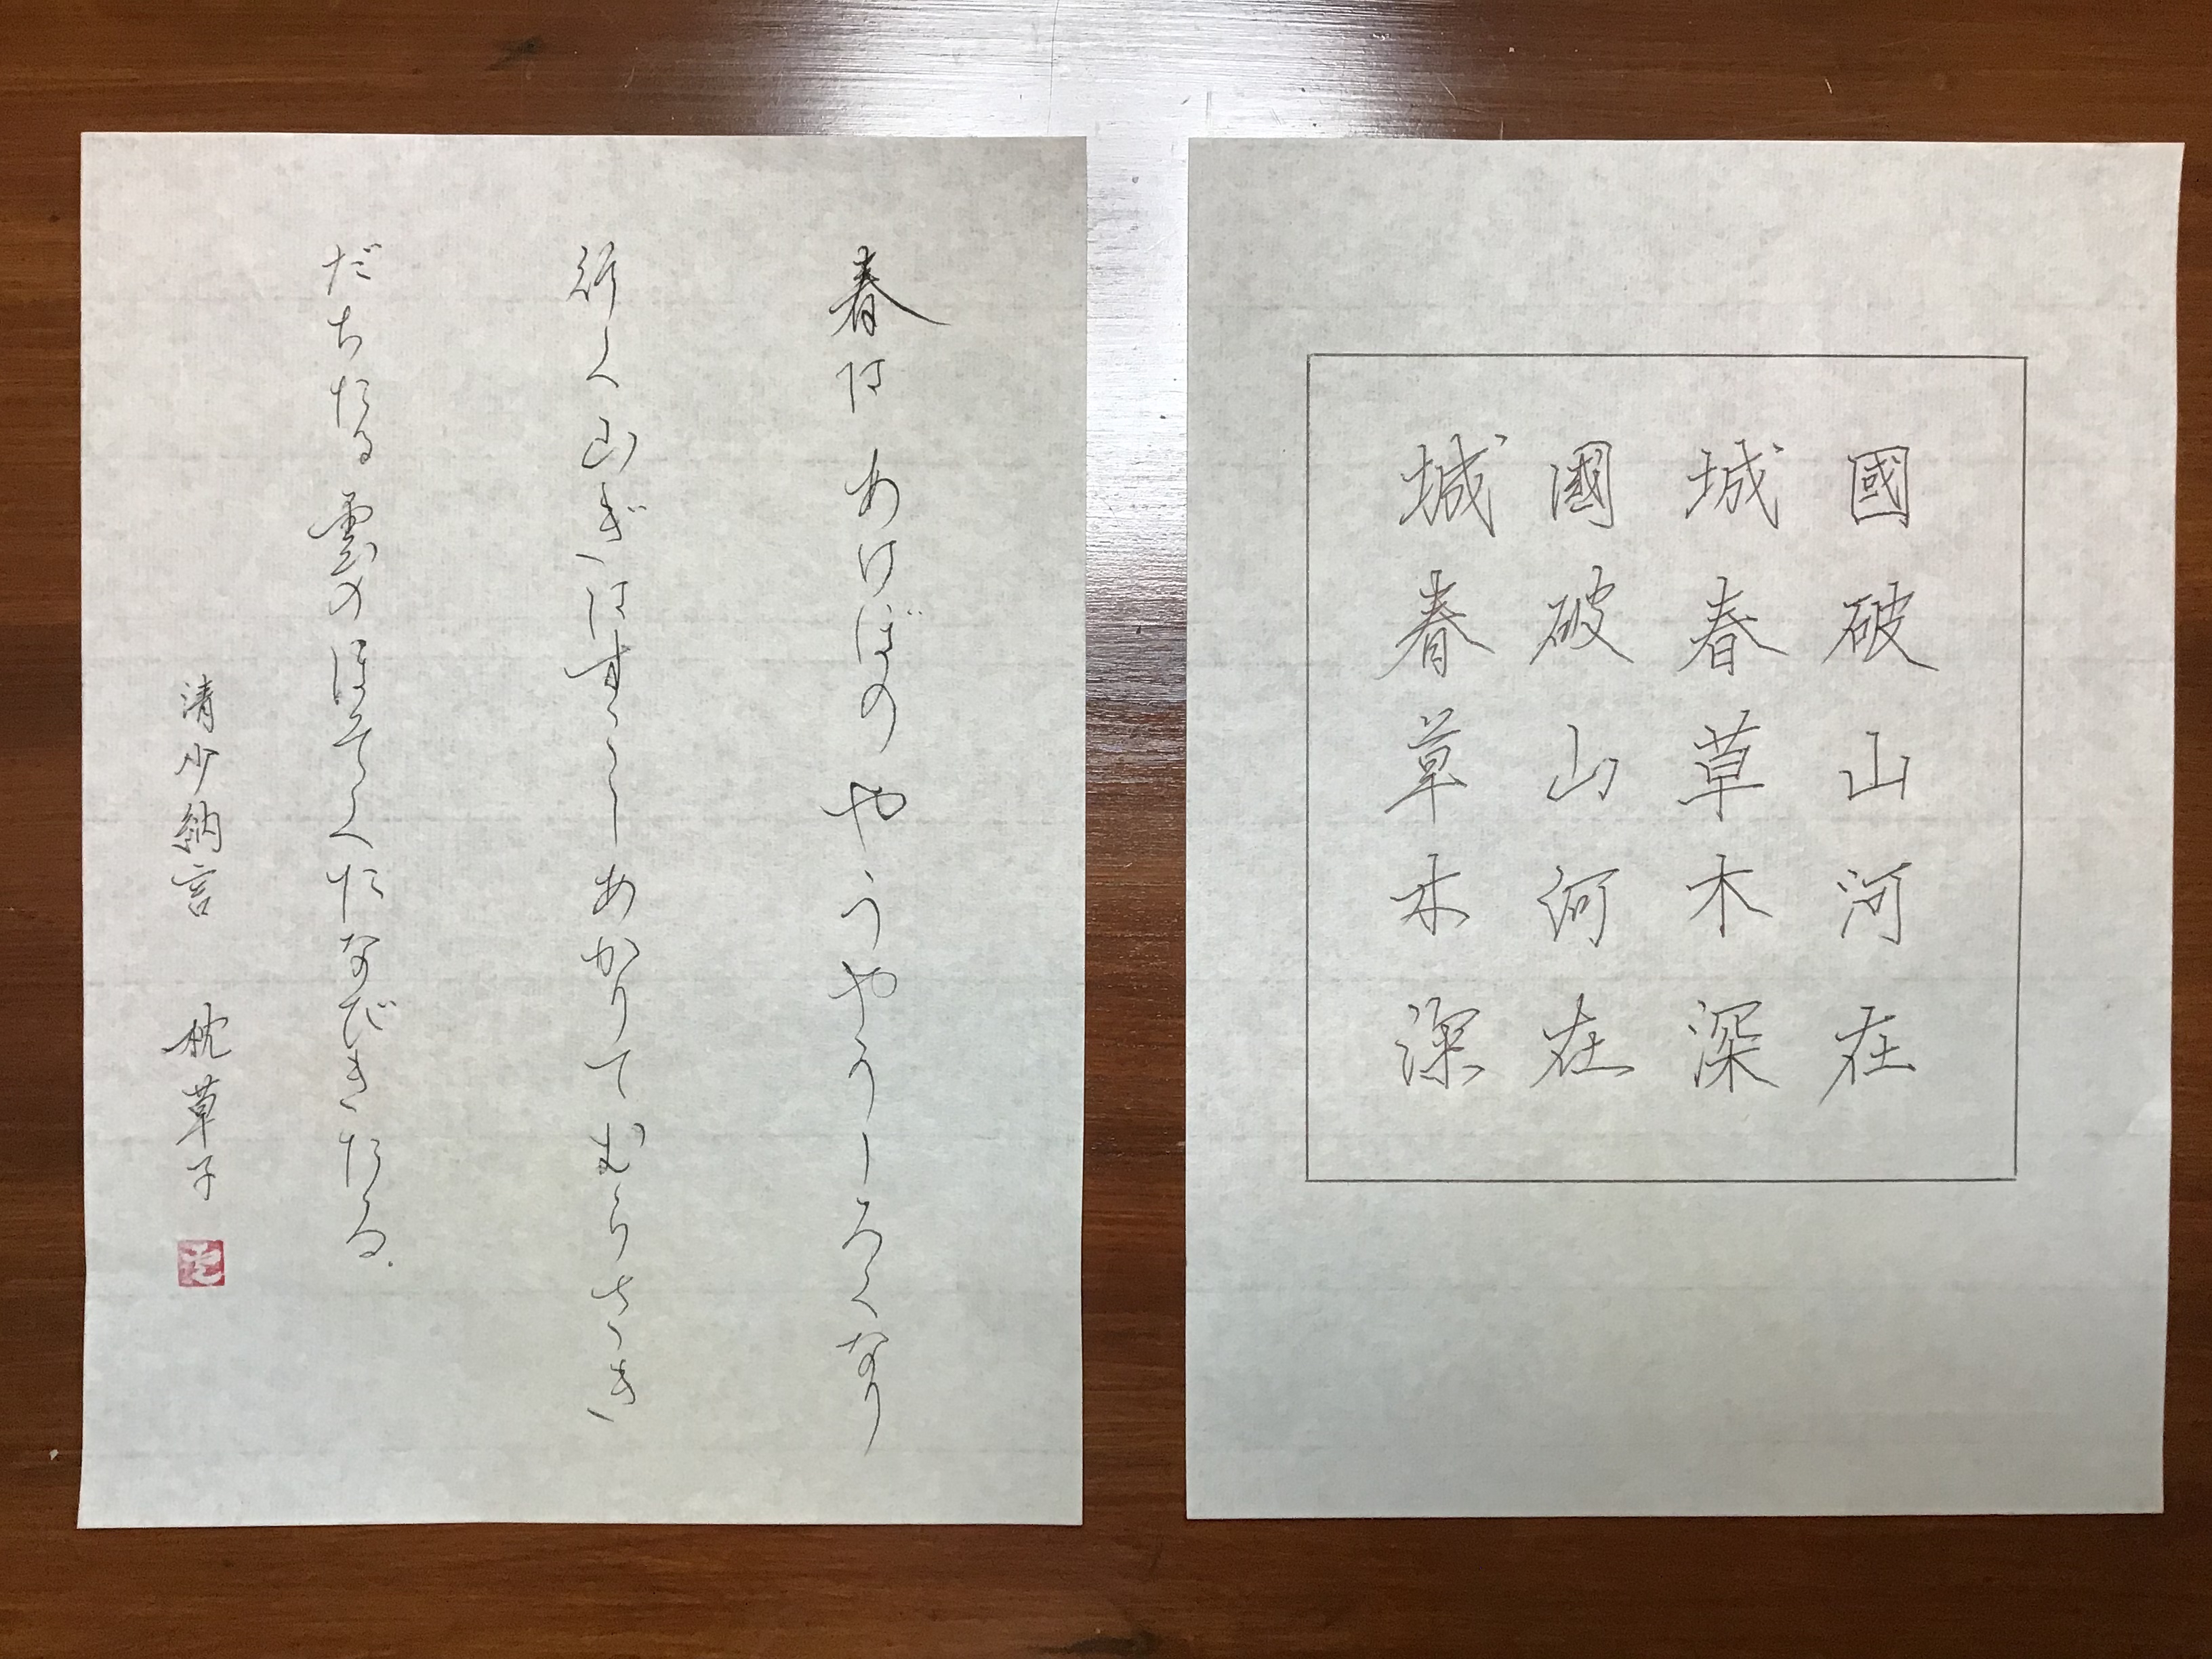 國破山河在
城春草木深
國破山河在
城春草木深
春はあけぼのやうやうしろくなり
行く山ぎはすこしあかりてむらさき
だちたる雲のほそくたなびきたる.
清少納言 枕草子